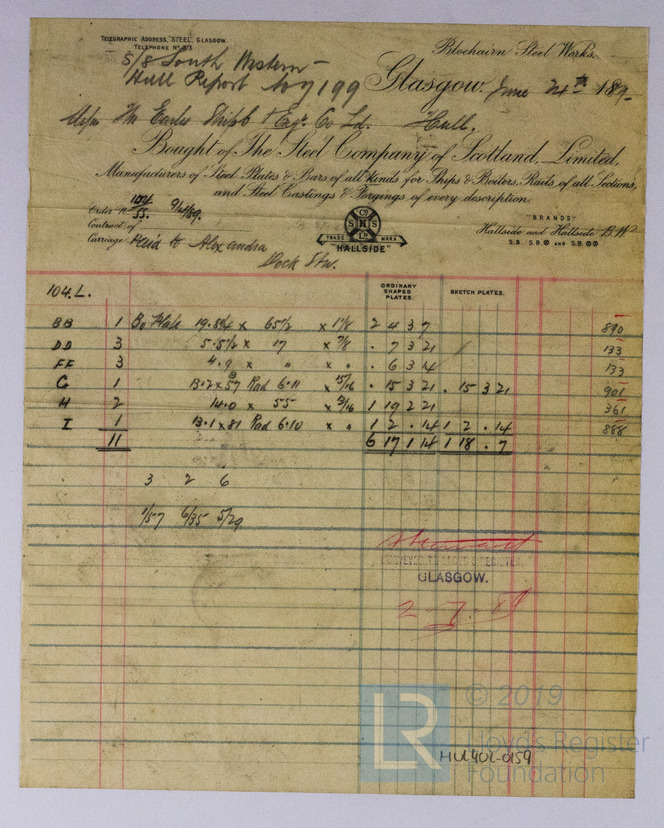 TELEGRAPHIC ADDRESS, "STEEL, GLASGOW.
TELEPHONE Nº 213
S/S South Western
Hull Report No 7199
Blochairn Steel Works.
Glasgow, June 24th 189
Messrs The Earles Shipb & Engr. Co Ld. Hull.
Bought of The Steel Company of Scotland, Limited,
Manufacturers of Steel Plates & Bars of all kinds for Ships & Boilers, Rails of all Sections,
and Steel Castings & Forgings of every description.
Order Nº 104/55. 9/4/89.
Contract of
Carriage Paid to Alexandra
Dock Stn.
Cº
S H S
Lº
TRADE MARK
"HALLSIDE"
"BRANDS"
Hallside and Hallside B.W
S.B. S.B. AND S.B.
104. L.
ORDINARY SHAPED PLATES.
SKETCH PLATES.
BB 1 Bo Plate 19.8¾ x 65½ x 1⅛ 2 4 3 7 890
DD 3 5.5½ x 17 x ⅞ . 7 3 21 133
FF 3 4.9 x " x " . 6 3 4 133
G 1 13.2 x 57 Rad 6.11 x 15/16 . 15 3 21 . 15 3 21 901
H 2 14.0 x 55 x 9/16 1 19 2 21 361
I 1 13.1 x 81 Rad 6.10 x " 1 2 . 14 1 2 . 14 888
11 6 17 1 14 1 18 . 7
3 2 6
1/57 6/35 5/29
SURVEYOR TO LLOYD'S REGISTER,
GLASGOW.
2-7-89
LR
© 2019
Lloyd's Register
Foundation
HUL402-0159